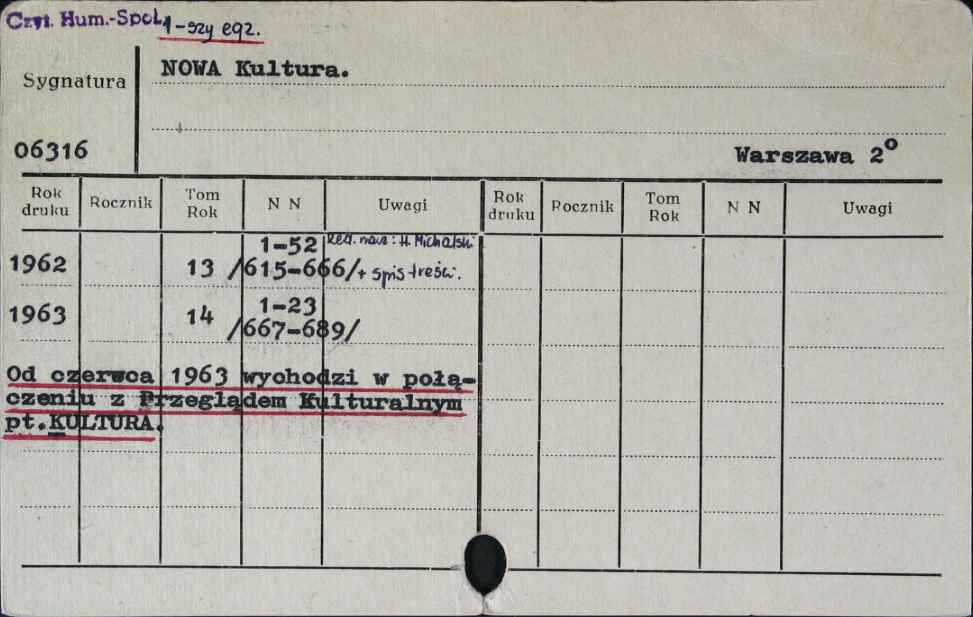 Czyt. Hum.-Społ. 1-szy egz.
Sygnatura
NOWA Kultura.
06316
Warszawa 2°
Rok druku Rocznik Tom Rok N N Uwagi Rok druku Rocznik Tom Rok N N Uwagi
1-52 Red. nacz: H. Michalski
1962 13 /615-666/ + spis treści.
1-23
1963 14
/667-689/
Od czerwca 1963 wychodzi w połą-
czeniu z Przeglądem Kulturalnym
pt.KULTURA.